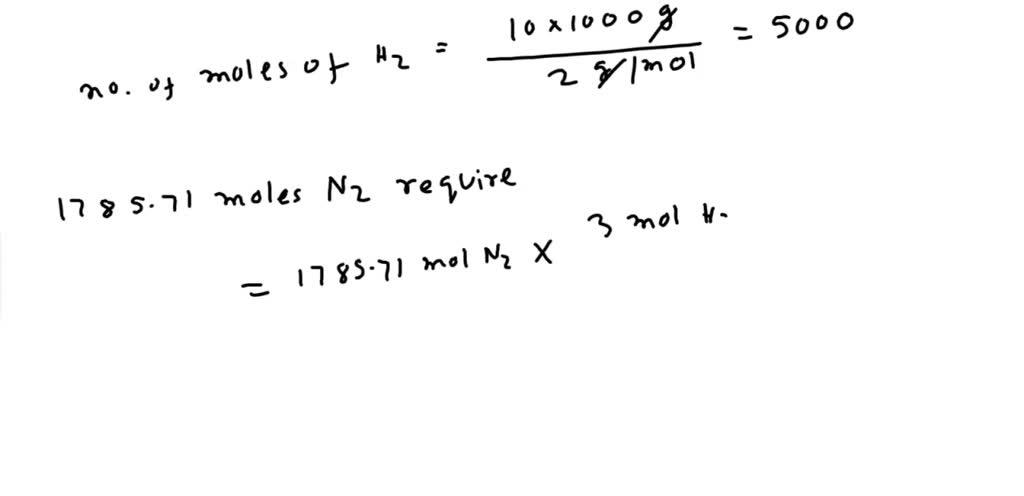 no. of moles of H2 = 10 x 1000 g / 2 g/mol = 5000
1785.71 moles N2 require
= 1785.71 mol N2 X 3 mol H